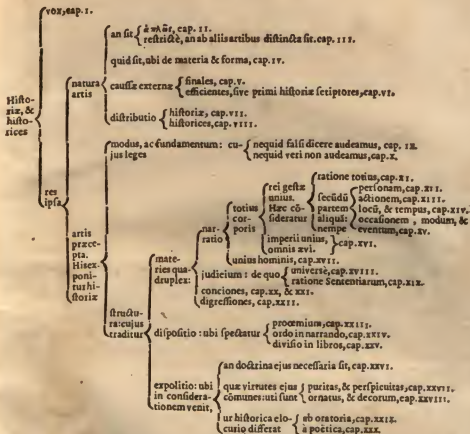 vox, cap. I.
an sit
ἁπλῶς, cap. II.
restrictè, an ab aliis artibus distincta sit. cap. III.
quid sit, ubi de materia & forma, cap. IV.
natura
artis
caussæ externæ
finales, cap. V.
efficientes, sive primi historiæ scriptores, cap. VI.
distributio
historiæ, cap. VII.
historices, cap. VIII.
Historiæ, &
histo-
rices
res
ipsa
modus, ac fundamentum: cu-
jus leges
nequid falsi dicere audeamus, cap. IX.
nequid veri non audeamus, cap. X.
artis
præcepta.
His expo-
nitur hi-
storiæ
structu-
ra: cujus
traditur
mate-
ries qua-
druplex:
nar-
ratio
totius
cor-
poris
rei gestæ
unius.
Hæc cō-
sideratur
ratione totius, cap. XI.
secūdū
partem
aliquā:
nempe
personam, cap. XII.
actionem, cap. XIII.
locū, & tempus, cap. XIV.
occasionem, modum, &
eventum, cap. XV.
imperii unius,
omnis ævi
cap. XVI.
unius hominis, cap. XVII.
judicium: de quo
universè, cap. XVIII.
ratione Sententiarum, cap. XIX.
conciones, cap. XX, & XXI.
digressiones, cap. XXII.
dispositio: ubi spectatur
prooemium, cap. XXIII.
ordo in narrando, cap. XXIV.
divisio in libros, cap. XXV.
expolitio: ubi
in considera-
tionem venit,
an doctrina ejus necessaria sit, cap. XXVI.
quæ virtutes ejus
cōmunes: uti sunt
puritas, & perspicuitas, cap. XXVII.
ornatus, & decorum, cap. XXVIII.
ut historica elo-
cutio differat
ab oratoria, cap. XXIX.
à poëtica, cap. XXX.